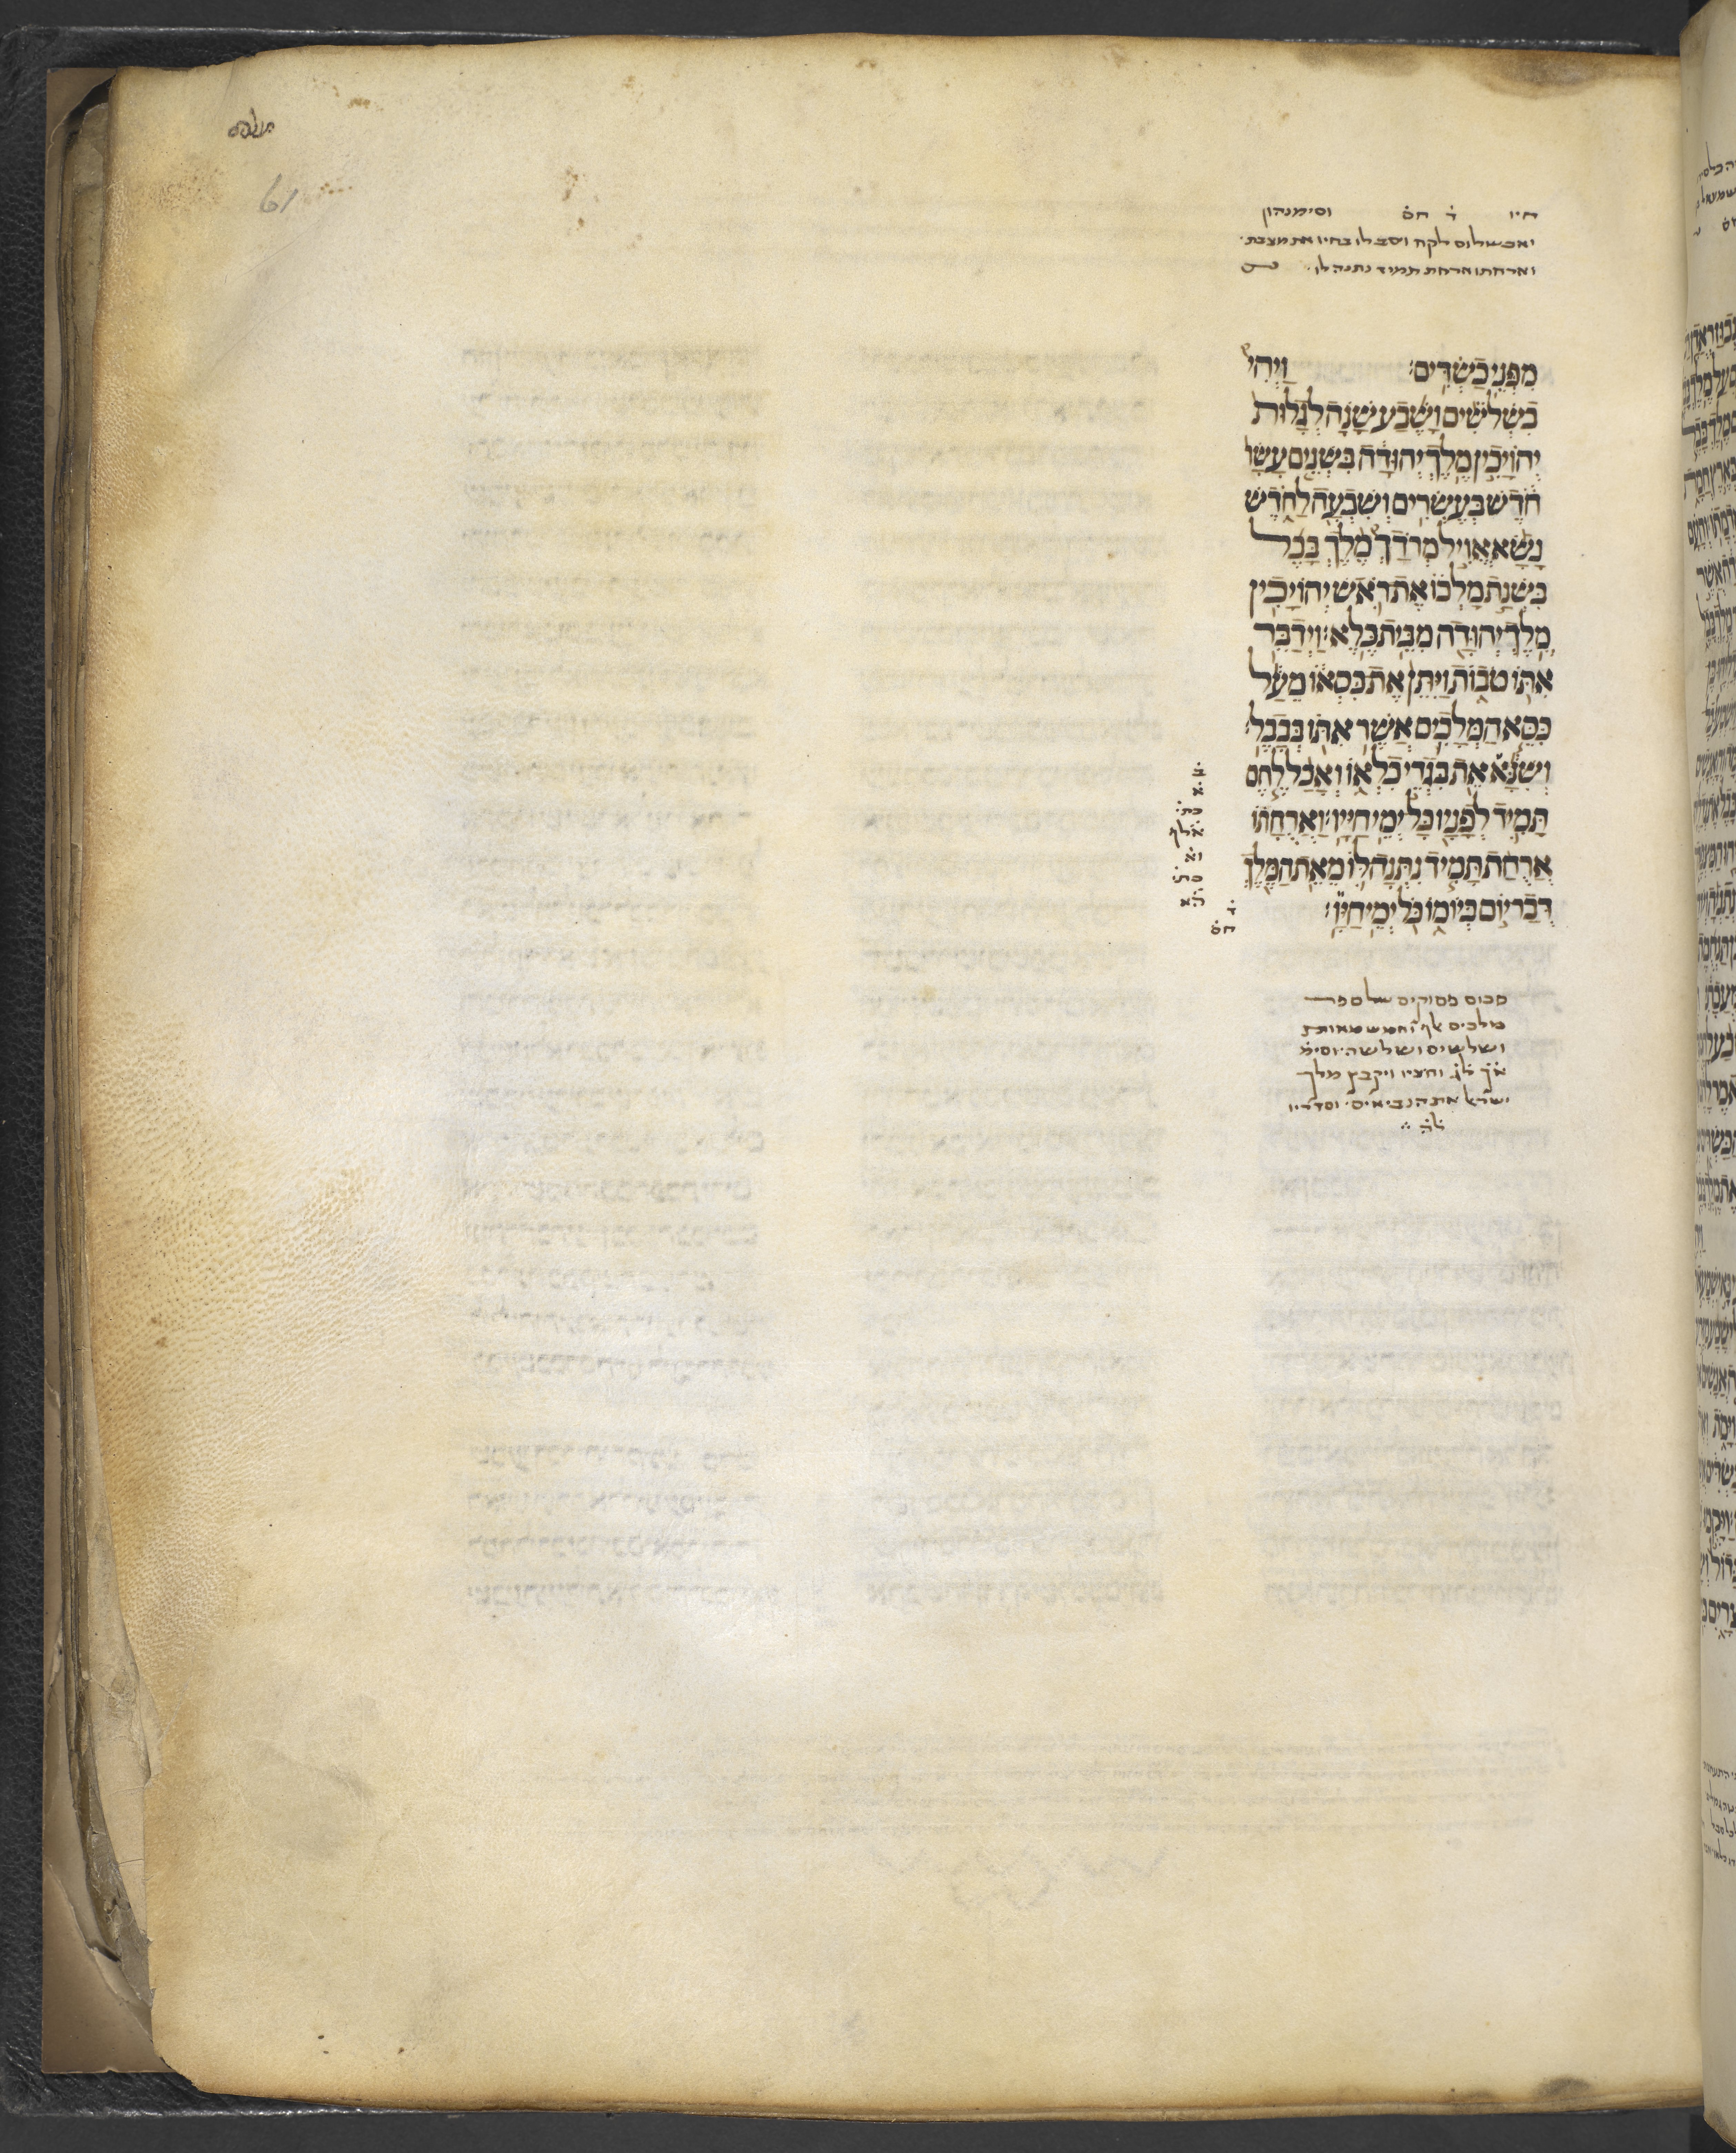 61
חיו ד חס וסימנהון
ואבשלום לקח ויצב לו בחיו את מצבת
וארחתו ארחת תמיד נתנה לו
מִפְּנֵי כַשְׂדִּים׃ וַיְהִי
בִשְׁלֹשִׁים וָשֶׁבַע שָׁנָה לְגָלוּת
יְהוֹיָכִין מֶלֶךְ יְהוּדָה בִּשְׁנֵים עָשָׂר
חֹדֶשׁ בְּעֶשְׂרִים וְשִׁבְעָה לַחֹדֶשׁ
נָשָׂא אֱוִיל מְרֹדַךְ מֶלֶךְ בָּבֶל
בִּשְׁנַת מָלְכוֹ אֶת רֹאשׁ יְהוֹיָכִין
מֶלֶךְ יְהוּדָה מִבֵּית כֶּלֶא׃ וַיְדַבֵּר
אִתּוֹ טֹבוֹת וַיִּתֵּן אֶת כִּסְאוֹ מֵעַל
כִּסֵּא הַמְּלָכִים אֲשֶׁר אִתּוֹ בְּבָבֶל׃
וְשִׁנָּא אֵת בִּגְדֵי כִלְאוֹ וְאָכַל לֶחֶם
תָּמִיד לְפָנָיו כָּל יְמֵי חַיָּיו׃ וַאֲרֻחָתוֹ
אֲרֻחַת תָּמִיד נִתְּנָה לּוֹ מֵאֵת הַמֶּלֶךְ
דְּבַר יוֹם בְּיוֹמוֹ כֹּל יְמֵי חַיָּו׃
ב
א
כת
אלף
וא
כת
הא
ד
חס
סכום פסוקים של ספר
מלכים אלף וחמש מאות
ושלשים ושלשה וסימ
אך לג וחציו ויקבץ מלך
ישראל את הנביאים וסדריו
לה